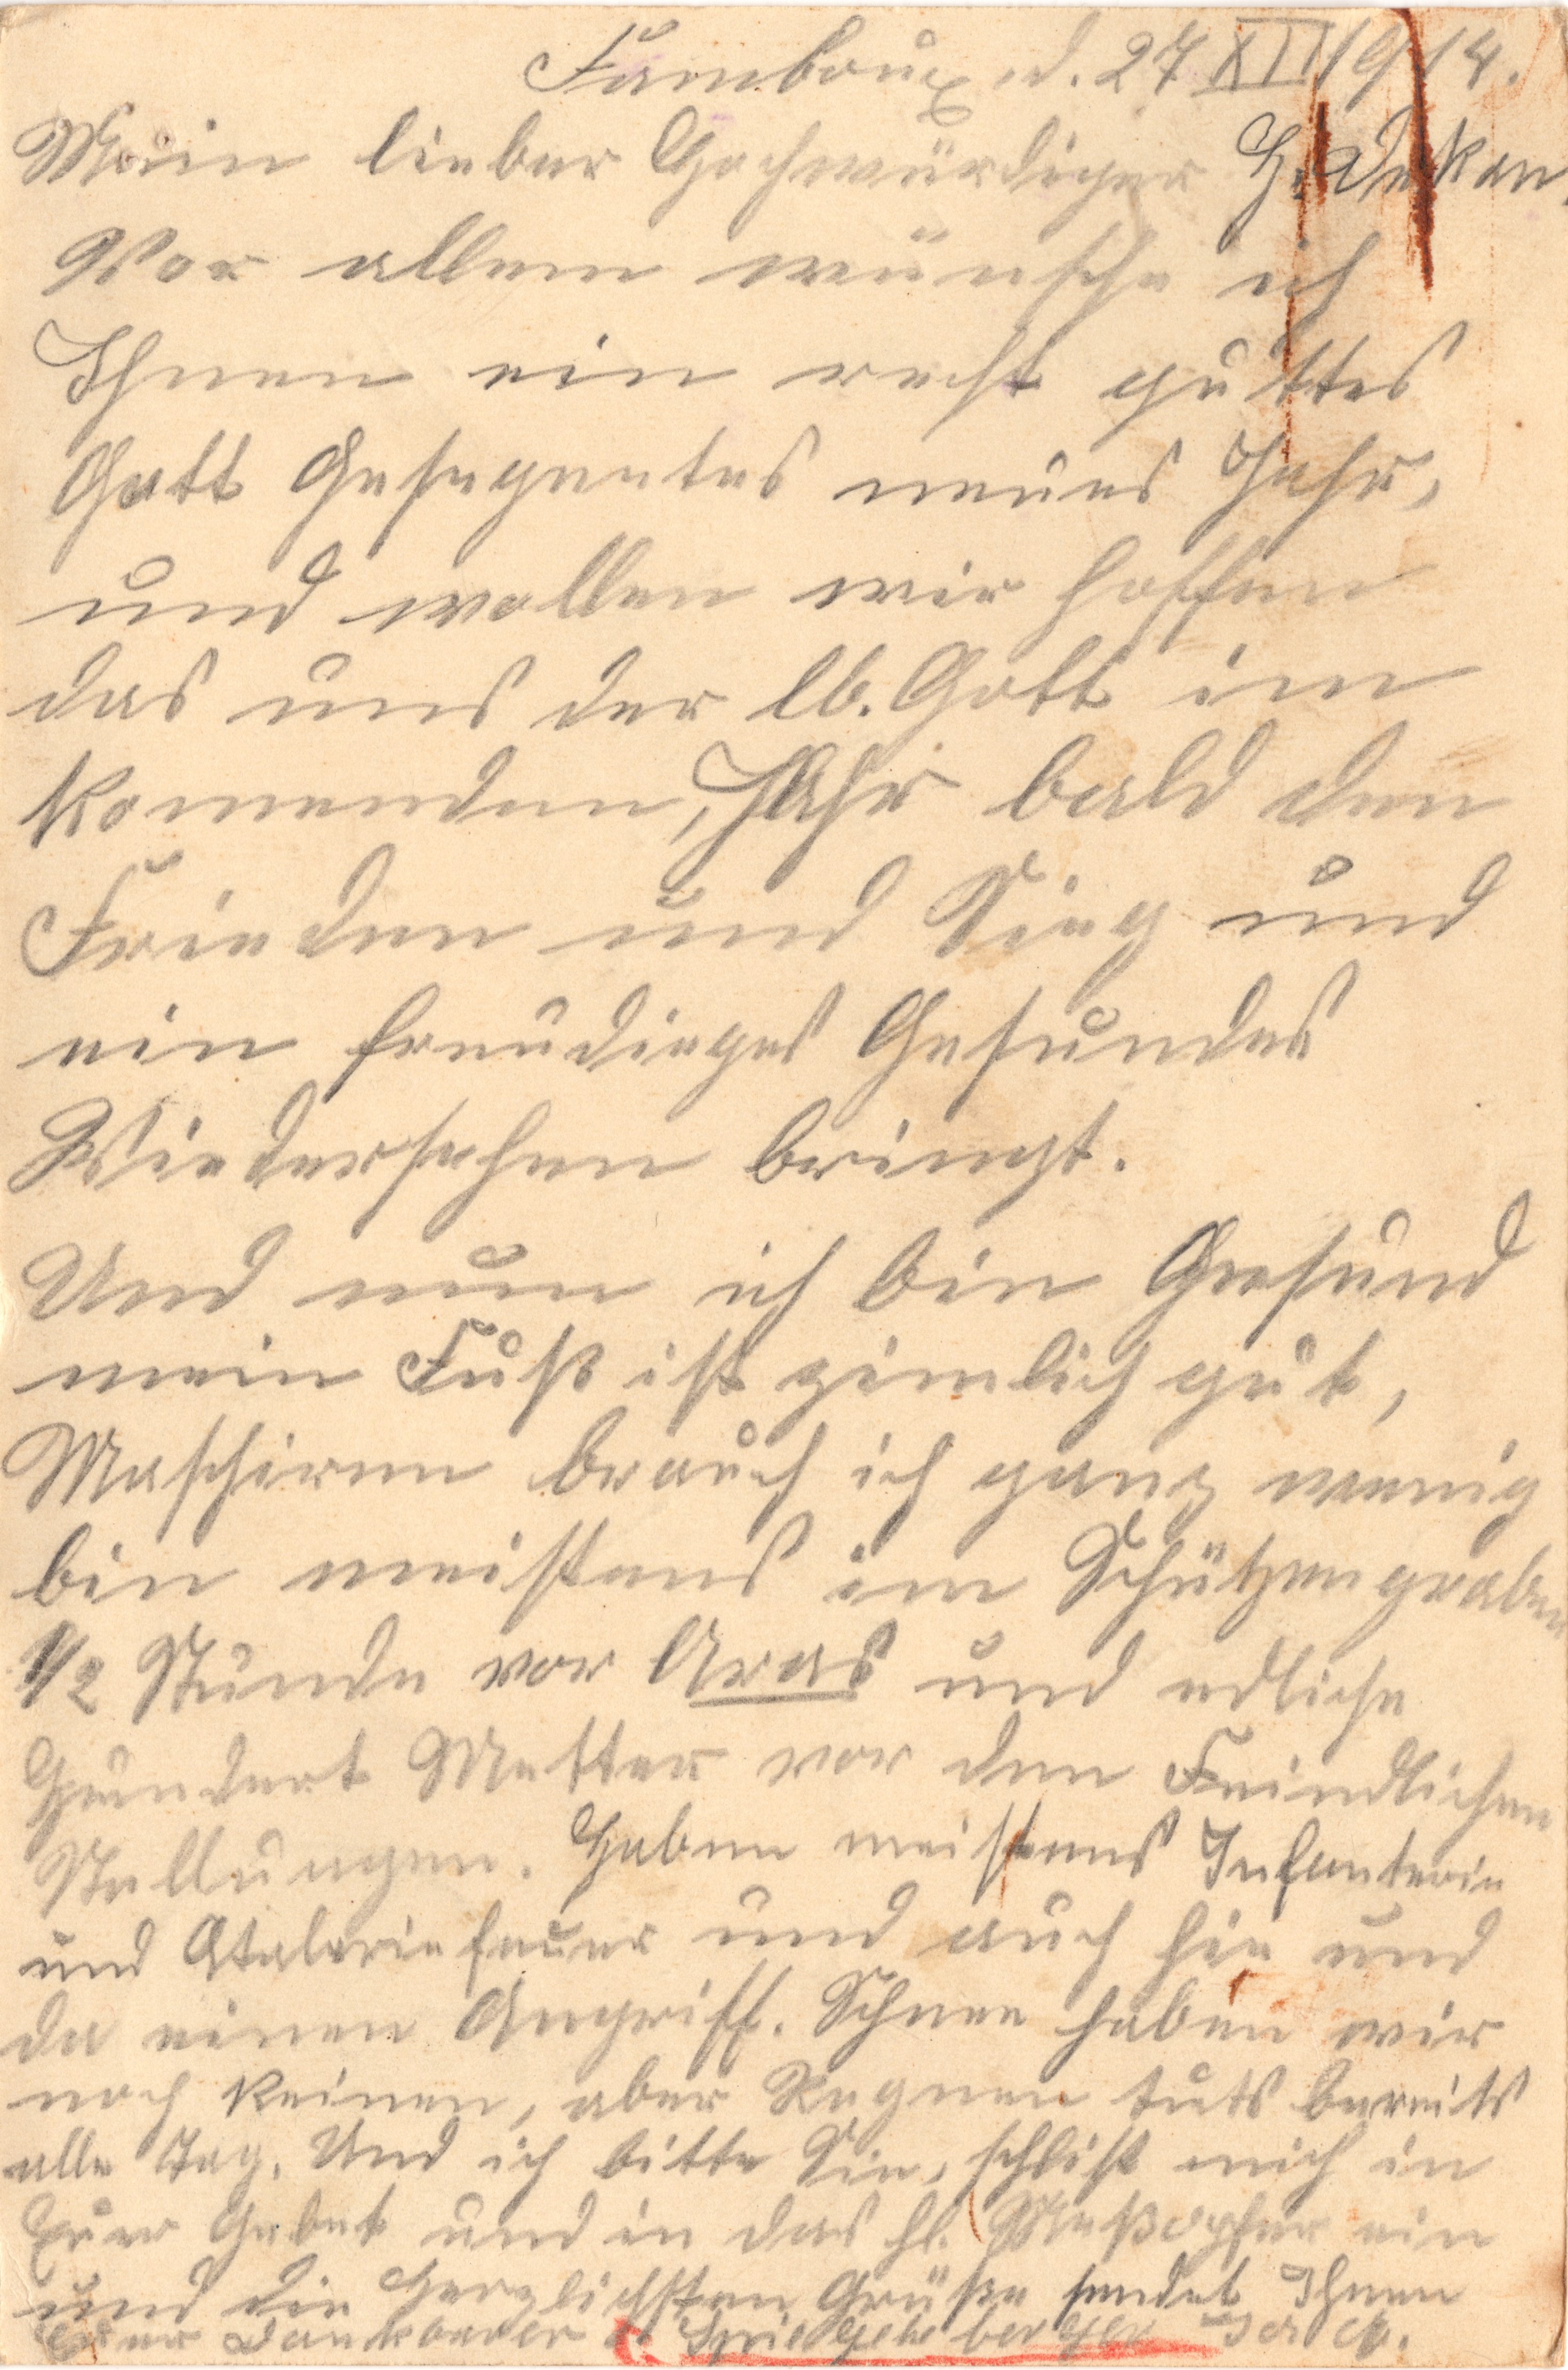 Famboux d. 27 XII 1914.
Mein lieber Hochwürdiger H. Dekan.
Vor allem wünsche ich
Ihnen ein recht guttes
Gott Gesegnetes neues Jahr,
und wollen wir hoffen
das uns der lb. Gott im
komenden, Jahr bald den
Frieden und Sieg und
ein freudieges Gesundes
Wiedersehen bringt.
Und nun ich bin Gesund
mein Fuß ist zimlich gut,
Maschiren brauch ich ganz wenig
bin meistens im Schützengraben
1/2 Stunde vor Aras und edliche
Hundert Metter vor den Feindlichen
Stellungen. Haben meistens Infanterie
und Atalerie feuer und auch hie und
da einen Angriff. Schnee haben wir
noch keinen, aber Regnen tuts bereits
alle Tag. Und ich bitte Sie, schlist mich in
Euer Gebet und in das hl. Meßopfer ein
und die Herzlichsten Grüße sendet Ihnen
Euer Dankbarer